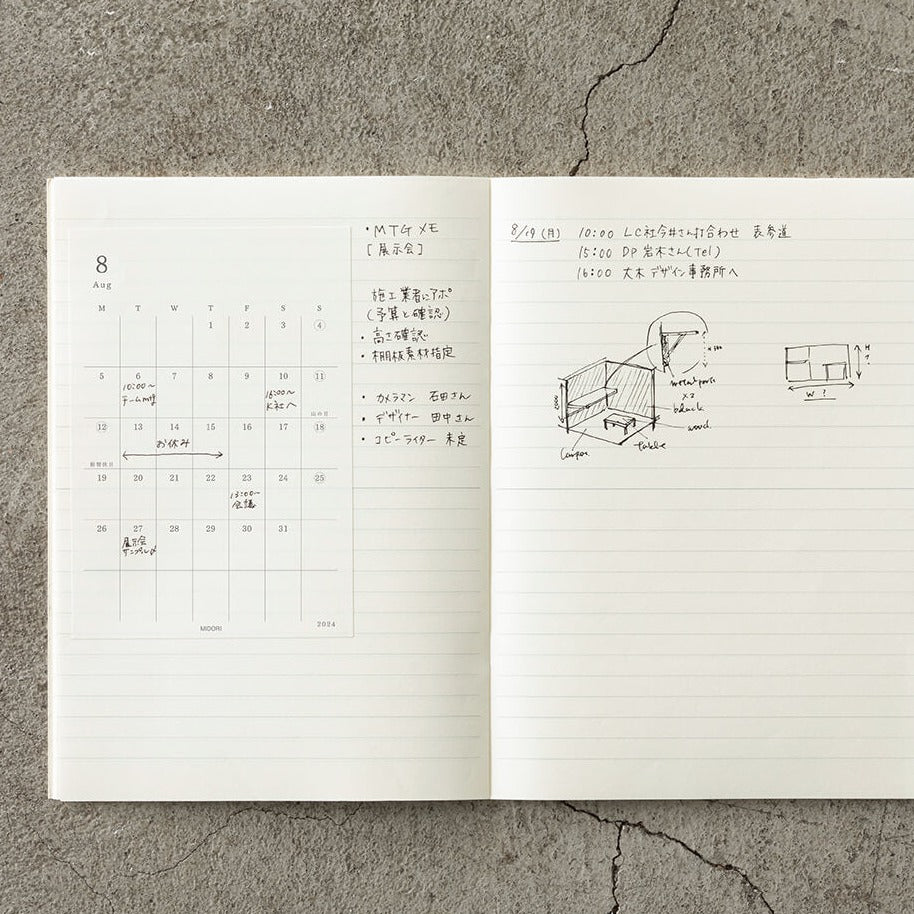 8
Aug
M T W T F S S
1 2 3 4
5 6 7 8 9 10 11
10:00～
チームMtg
16:00～
K社へ
山の日
12 13 14 15 16 17 18
お休み
振替休日
19 20 21 22 23 24 25
13:00～
会議
26 27 28 29 30 31
展示会
サンプル〆
MIDORI
2024
・MTGメモ
[展示会]
施工業者にアポ
(予算と確認)
・高さ確認
・棚板素材指定
・カメラマン 石田さん
・デザイナー 田中さん
・コピーライター 未定
8/19(月) 10:00 LC社今井さん打合わせ 表参道
15:00 DP 岩木さん(Tel)
16:00 大木デザイン事務所へ
×2
black
wood
table
H?
W?